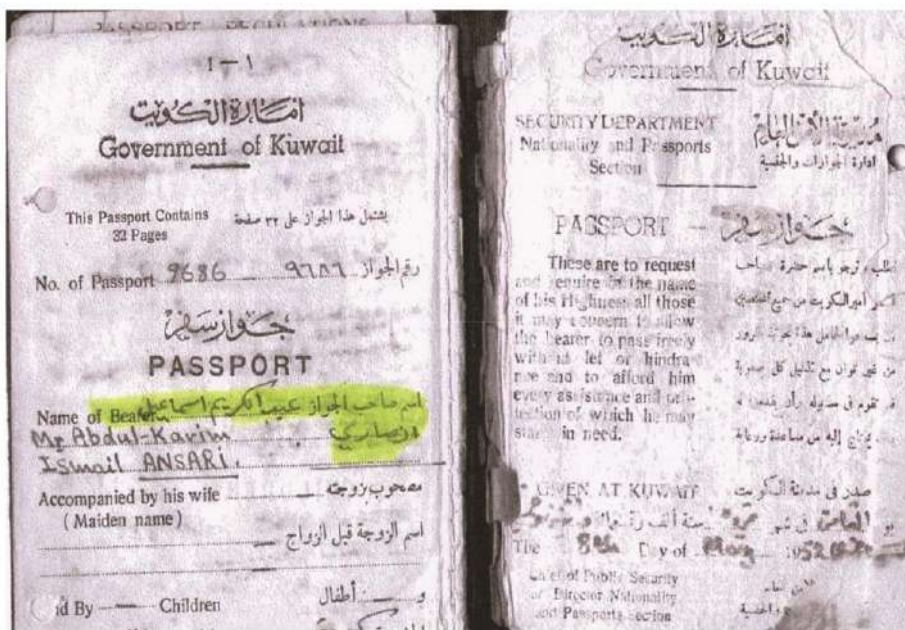 PASSPORT REGULATIONS
١ — ١
امارة الكويت
Government of Kuwait
This Passport Contains 32 Pages
يشتمل هذا الجواز على ٣٢ صفحة
No. of Passport 9686 ٩٦٨٦ رقم الجواز
جواز سفر
PASSPORT
Name of Bearer اسم صاحب الجواز عبد الكريم اسماعيل
Mr. Abdul-Karim انصاري
Ismail ANSARI.
Accompanied by his wife مصحوب بزوجته
(Maiden name)
اسم الزوجة قبل الزواج
By Children و أطفال
امارة الكويت
Government of Kuwait
SECURITY DEPARTMENT
Nationality and Passports
Section
مديرية الأمن العام
ادارة الجوازات والجنسية
PASSPORT — جواز سفر
These are to request
and require in the name
of his Highness all those
it may concern to allow
the bearer to pass freely
without let or hindra-
nce and to afford him
every assistance and pro-
tection of which he may
stand in need.
حضرة صاحب
أمير الكويت من جميع
من غير توان مع تذليل كل صعوبة
إليه من مساعدة ورعاية
GIVEN AT KUWAIT صدر في مدينة الكويت
The 8th Day of 1952
Chief of Public Security
or Director Nationality
and Passports Section